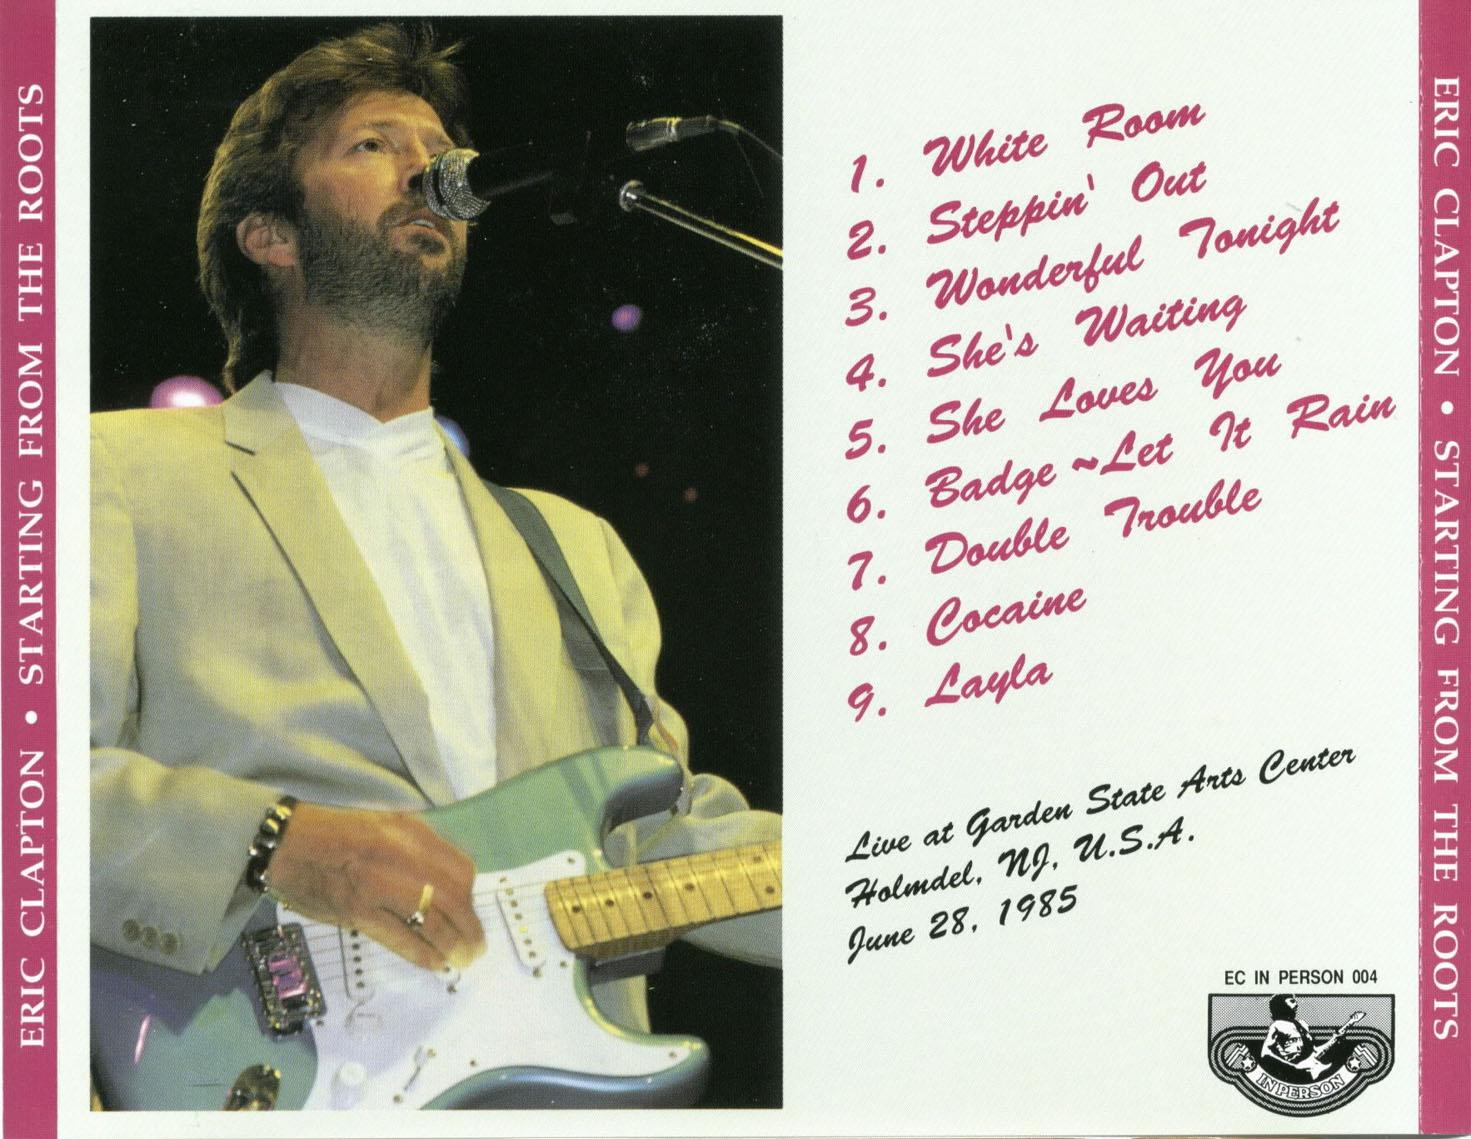 ERIC CLAPTON • STARTING FROM THE ROOTS
1. White Room
2. Steppin' Out
3. Wonderful Tonight
4. She's Waiting
5. She Loves You
6. Badge ~ Let It Rain
7. Double Trouble
8. Cocaine
9. Layla
Live at Garden State Arts Center
Holmdel, NJ, U.S.A.
June 28, 1985
EC IN PERSON 004
IN PERSON
ERIC CLAPTON • STARTING FROM THE ROOTS